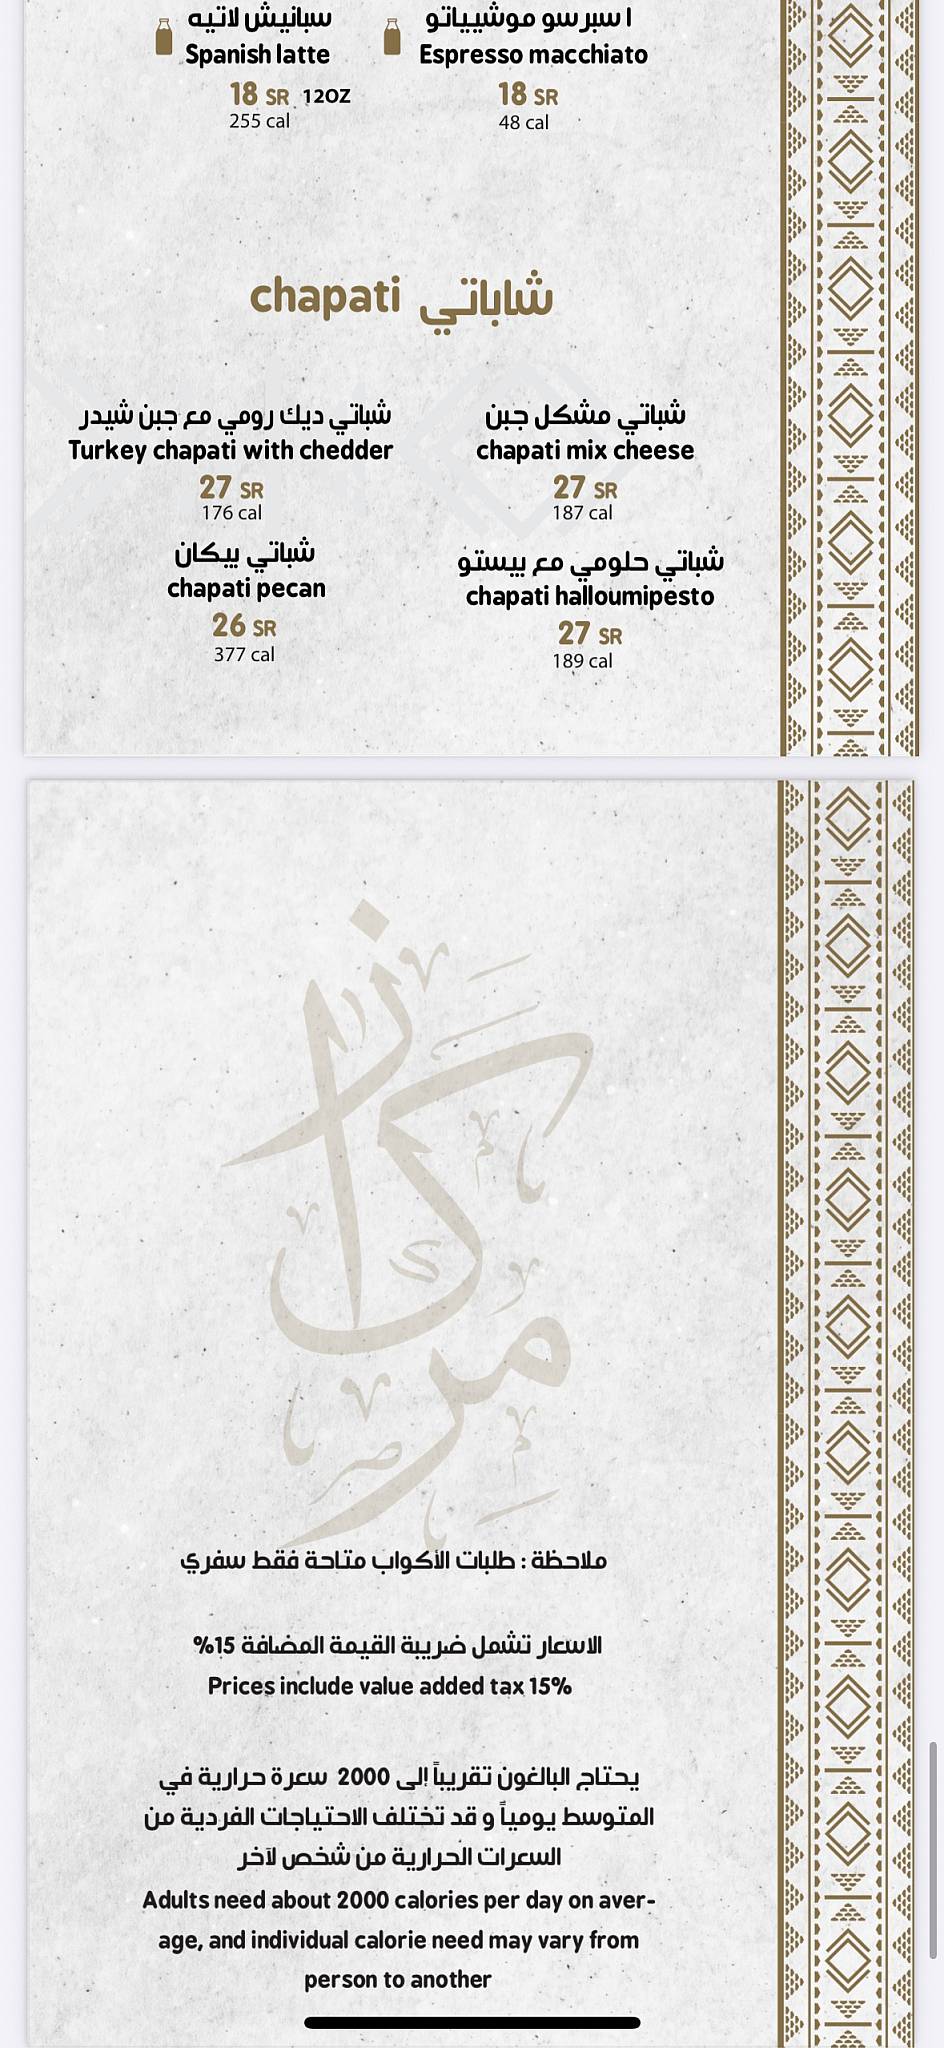 سبانيش لاتيه
Spanish latte
18 SR 12OZ
255 cal
ا سبرسو موشيياتو
Espresso macchiato
18 SR
48 cal
chapati شاباتي
شباتي ديك رومي مع جبن شيدر
Turkey chapati with chedder
27 SR
176 cal
شباتي مشكل جبن
chapati mix cheese
27 SR
187 cal
شباتي بيكان
chapati pecan
26 SR
377 cal
شباتي حلومي مع بيستو
chapati halloumipesto
27 SR
189 cal
ملاحظة : طلبات الأكواب متاحة فقط سفري
الاسعار تشمل ضريبة القيمة المضافة 15%
Prices include value added tax 15%
يحتاج البالغون تقريباً إلى 2000 سعرة حرارية في
المتوسط يومياً و قد تختلف الاحتياجات الفردية من
السعرات الحرارية من شخص لآخر
Adults need about 2000 calories per day on aver-
age, and individual calorie need may vary from
person to another